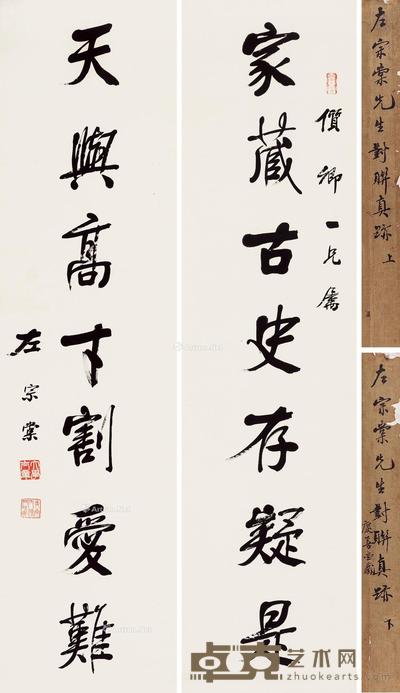 左宗棠先生對聯真跡 上
左宗棠先生對聯真跡 下
價卿一兄屬
家藏古史存疑是
天與高才割愛難
左宗棠
卓克艺术网
www.zhuokearts.com